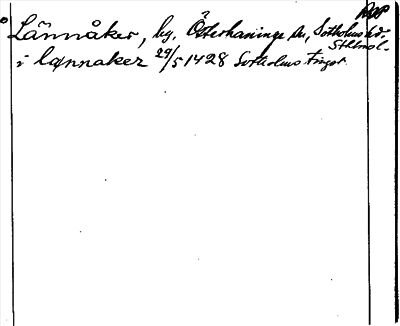 RAP
Lännåker, by, Österhaninge sn, Sotholms hd,
Sthlms l.
i lannaker 29/5 1428 Sotholms tingst.